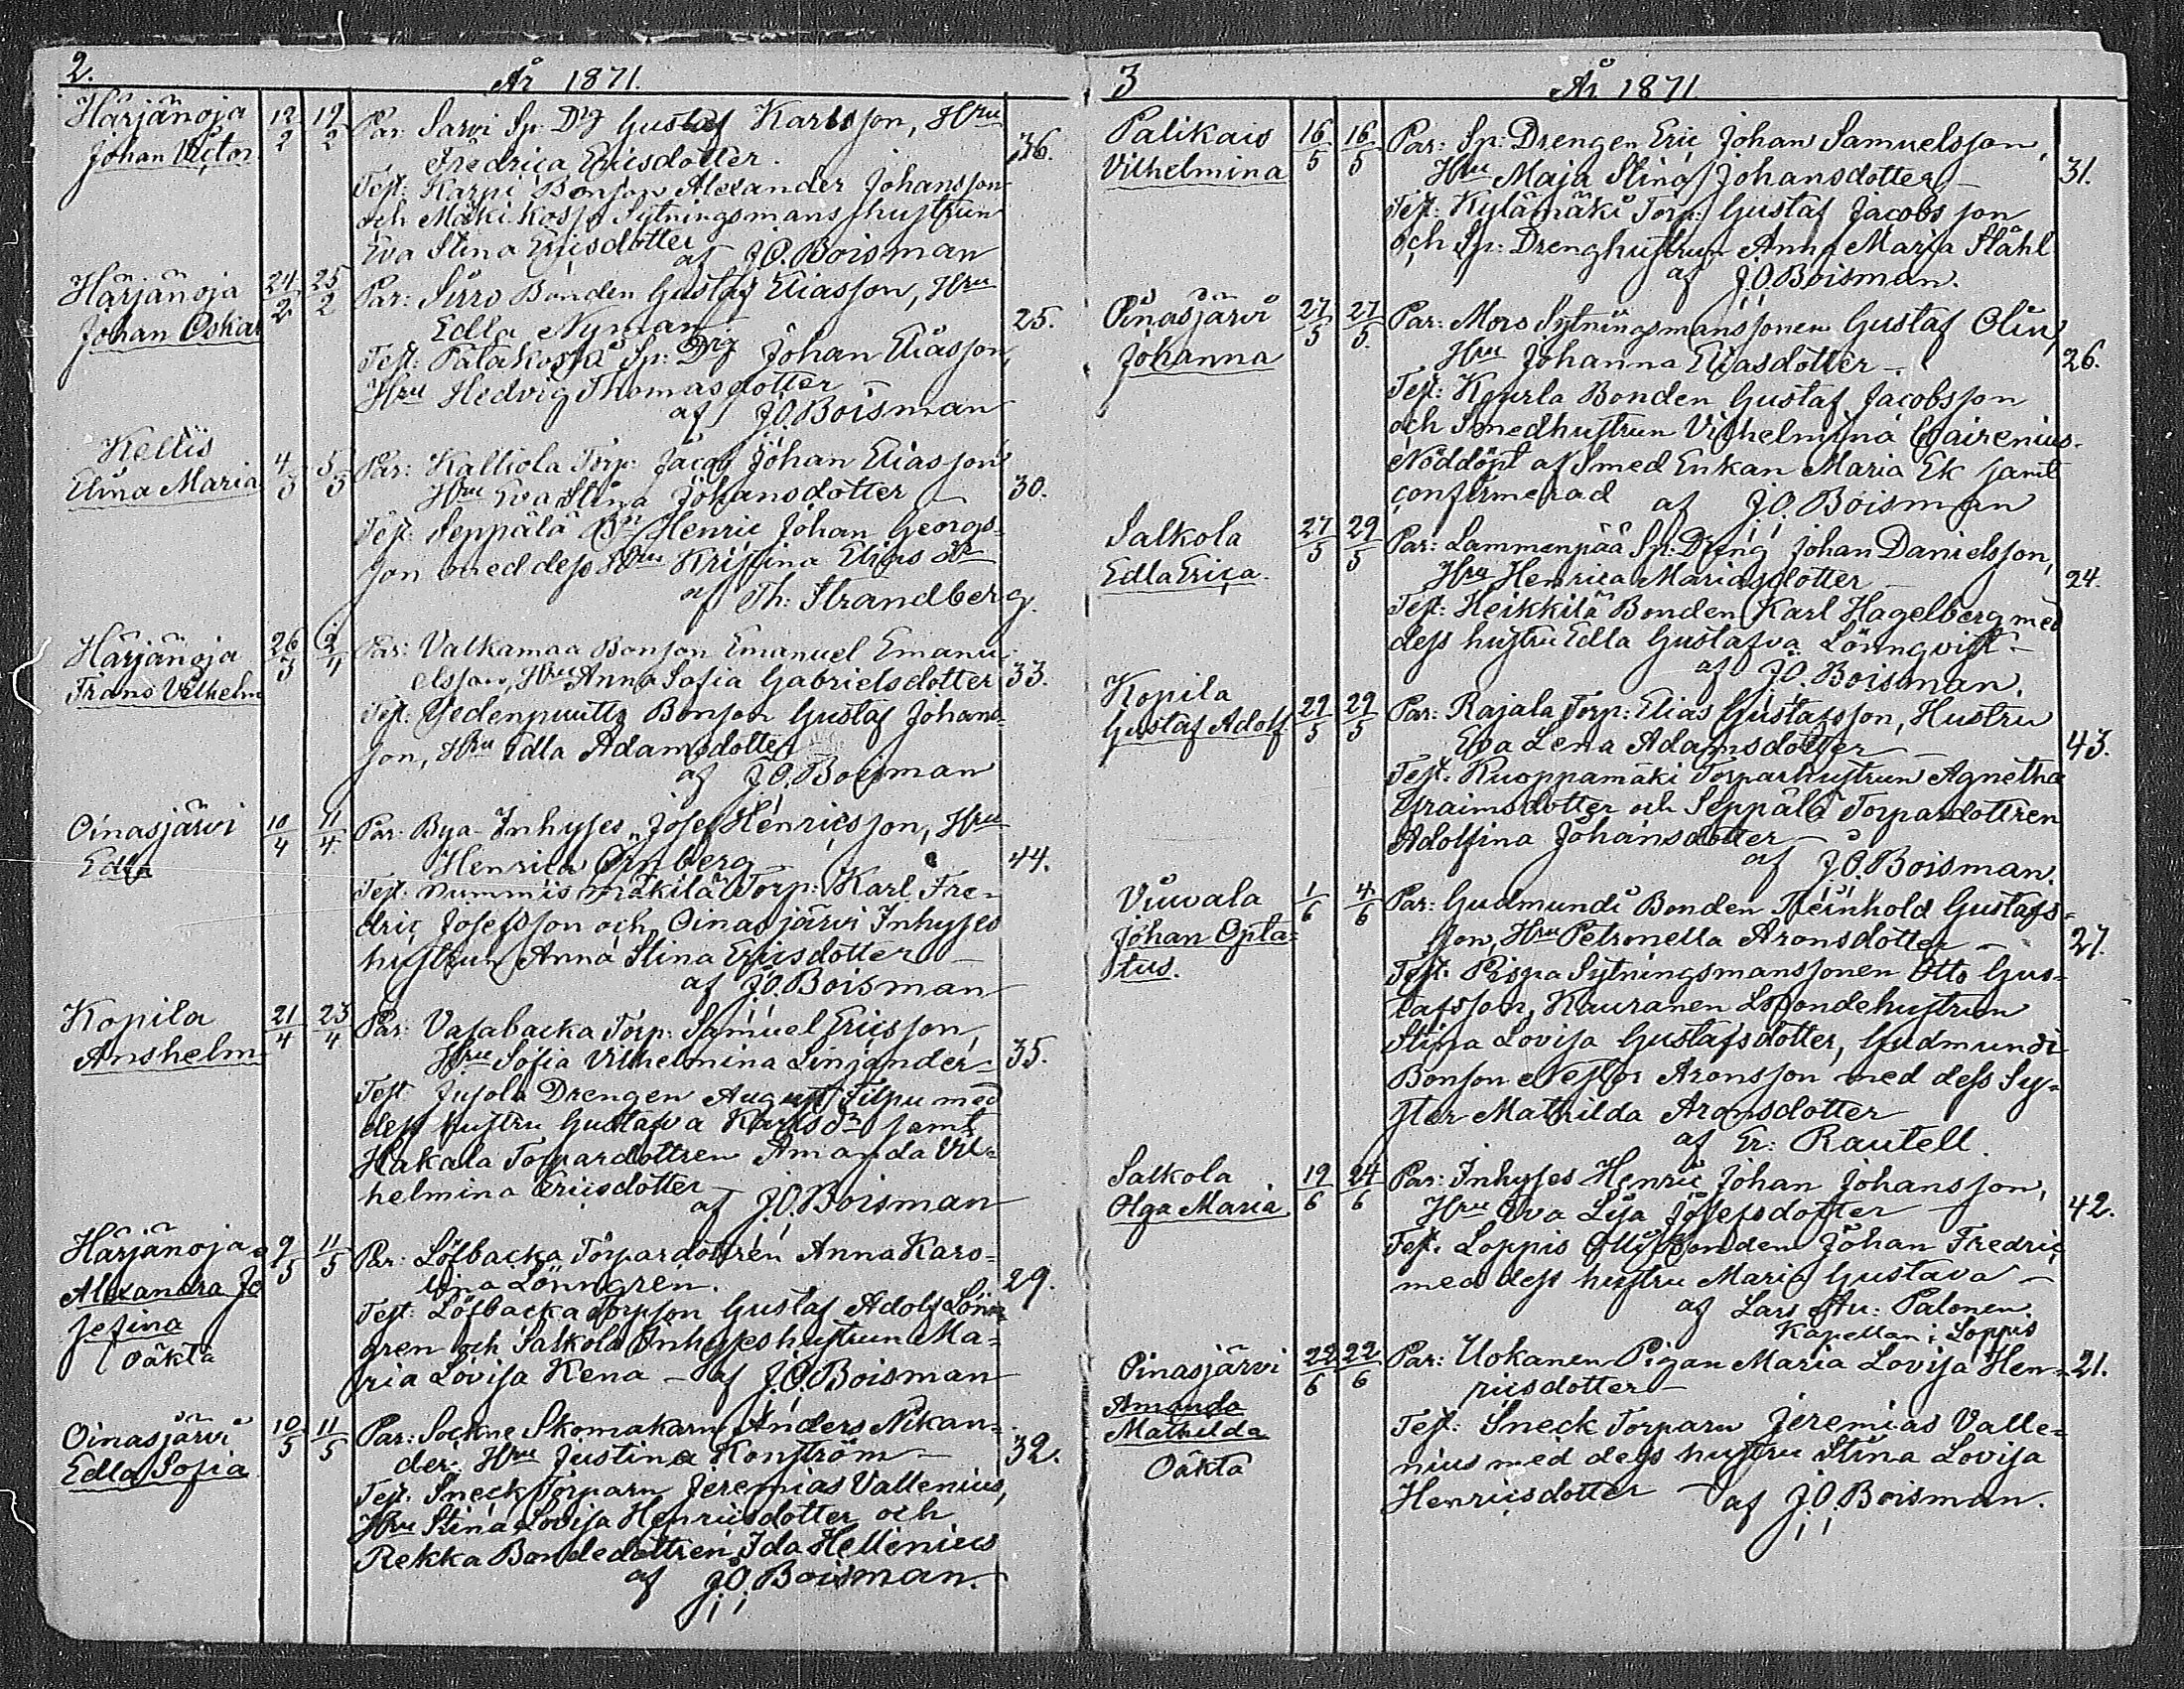 2.
År 1871.
Härjänoja 12/2 12/2 Par: Sarvi Sp: Drg Gustaf Karlsson, Hru
Johan Victor Fredrica Ericsdotter. 36.
Test: Karpi Bonson Alexander Johansson
och Mäki Sytningsmanshustrun
Eva Stina Ericsdotter
af J.O. Boisman
Härjänoja 24/2 25/2 Par: Sirro Bonden Gustaf Eliasson, Hru
Johan Oskar Edla Nyman 25.
Test: Palakoski Sp: Drg Johan Eliasson,
Hru Hedvig Thomasdotter –
af J.O. Boisman
Kellis
Elina Maria 4/3 5/3 Par: Kalliola Torp: Jacob Johan Eliasson
Hru Eva Stina Johansdotter – 30.
Test: Seppälä Bn Henric Johan Georgs-
son med dess Hru Kristina Elias dr
af Th: Strandberg.
Härjänoja 26/3 2/4 Par: Valkamaa Bonson Emanuel Emanu-
Frans Vilhelm elsson, Hru Anna Sofia Gabrielsdotter 33.
Test: Bonson Gustaf Johans-
son, Hru Edla Adamsdotter
af J.O. Boisman
Oinasjärvi 10/4 11/4 Par: Bya-Inhyses Josef Henricsson, Hru
Edla Henrica Örnberg – 44.
Test: Nummis mäkilä Torp: Karl Fre-
dric Josefsson och Oinasjärvi Inhyses
hustrun Anna Stina Ericsdotter –
af J.O. Boisman
Kopila 21/4 23/4 Par: Vasabacka Torp: Samuel Ericsson,
Anshelm Hru Sofia Vilhelmina Linjander – 35.
Test: Jusola Drengen August Filpu med
dess hustru Gustafva Karlsdr samt
Hakala Torpardottren Amanda Vil-
helmina Ericsdotter –
af J.O. Boisman
Härjänoja 9/5 11/5 Par: Löfbacka Torpardottren Anna Karo-
Alexandra Jo lina Lönngren. 29.
sefina Test: Löfbacka Torpson Gustaf Adolf Lönn-
oäkta gren och Salkola Inhyseshustrun Ma-
ria Lovisa Kena – af J.O. Boisman
Oinasjärvi 10/5 11/5 Par: Sockne Skomakarn Anders Nikan-
Edla Sofia der, Hru Justina Konström – 32.
Test: Sneck Torparn Jeremias Vallenius,
Hru Stina Lovisa Henricsdotter och
Rekka Bondedottren Ida Hellenius
af J.O. Boisman.
3
År 1871
Palikais 16/5 16/5 Par: Sp: Drengen Eric Johan Samuelsson,
Vilhelmina Hru Maja Stina Johansdotter – 31.
Test: Kylämäki Torp: Gustaf Jacobsson
och Sp: Drenghustrun Anna Maria Ståhl
af J.O. Boisman.
Oinasjärvi 27/5 27/5 Par: Mors Sytningsmanssonen Gustaf Olin,
Johanna Hru Johanna Eliasdotter – 26.
Test: Kourla Bonden Gustaf Jacobsson
och Smedhustrun Vilhelmina
Nöddöpt af Smed Enkan Maria Ek samt
confirmerad af J.O. Boisman
Salkola 27/5 29/5 Par: Lammenpää Sp: Dreng Johan Danielsson,
Edla Erica Hru Henrica Mariasdotter – 24.
Test: Heikkilä Bonden Karl Hagelberg med
dess hustru Edla Gustafva Lönnqvist –
af J.O. Boisman.
Kopila
Gustaf Adolf 29/5 29/5 Par: Rajala Torp: Elias Gustafsson, Hustru
Eva Lena Adamsdotter – 43.
Test: Kuoppamäki Torparhustrun Agnetha
Efraimsdotter och Seppälä Torpardottren
Adolfina Johansdotter –
af J.O. Boisman.
Viuvala 1/6 4/6 Par: Gudmundi Bonden Reinhold Gustafs-
Johan Opta- son, Hru Petronella Aronsdotter – 27.
tus. Test: Sytningsmanssonen Otto Gus-
tafsson, Kauranen Bondehustrun
Stina Lovisa Gustafsdotter, Gudmundi
Bonson Nestor Aronsson med dess Sy-
ster Mathilda Aronsdotter
af Er: Rautell.
Salkola 19/6 24/6 Par: Inhyses Henric Johan Johansson,
Olga Maria Hru Eva Lisa Josefsdotter 42.
Test: Loppis Bonden Johan Fredric
med dess hustru Maria Gustava –
af Lars Palonen.
Kapellan i Loppis
Oinasjärvi 22/6 22/6 Par: Uokanen Pigan Maria Lovisa Hen- 21.
Amanda ricsdotter –
Mathilda Test: Sneck Torparn Jeremias Valle-
Oäkta nius med dess hustru Stina Lovisa
Henricsdotter – af J.O. Boisman.